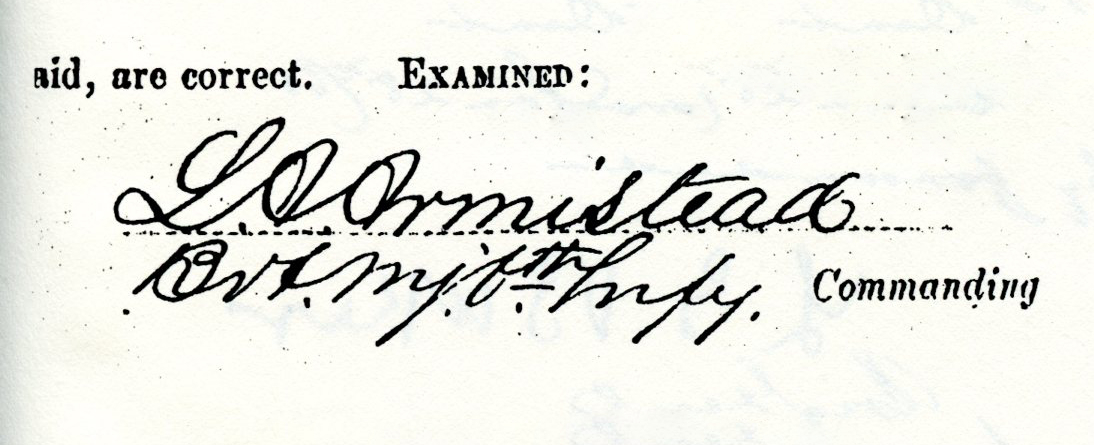 aid, are correct. EXAMINED:
L. A. Armistead
Bvt. Mj. 6th Infy. Commanding